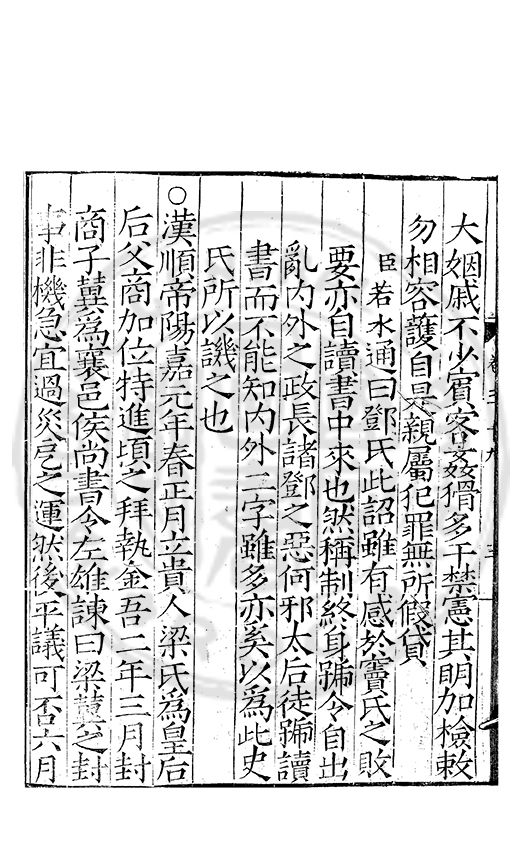 大姻戚不少賓客姦猾多干禁憲其明加檢敕
勿相容護自是親屬犯罪無所假貸
臣若水通曰鄧氏此詔雖有感於竇氏之敗
要亦自讀書中來也然稱制終身號令自出
亂內外之政長諸鄧之惡何邪太后徒號讀
書而不能知內外二字雖多亦奚以爲此史
氏所以譏之也
○漢順帝陽嘉元年春正月立貴人梁氏爲皇后
后父商加位特進頃之拜執金吾二年三月封
商子冀爲襄邑侯尚書令左雄諫曰梁冀之封
事非機急宜過災戹之運然後平議可否六月